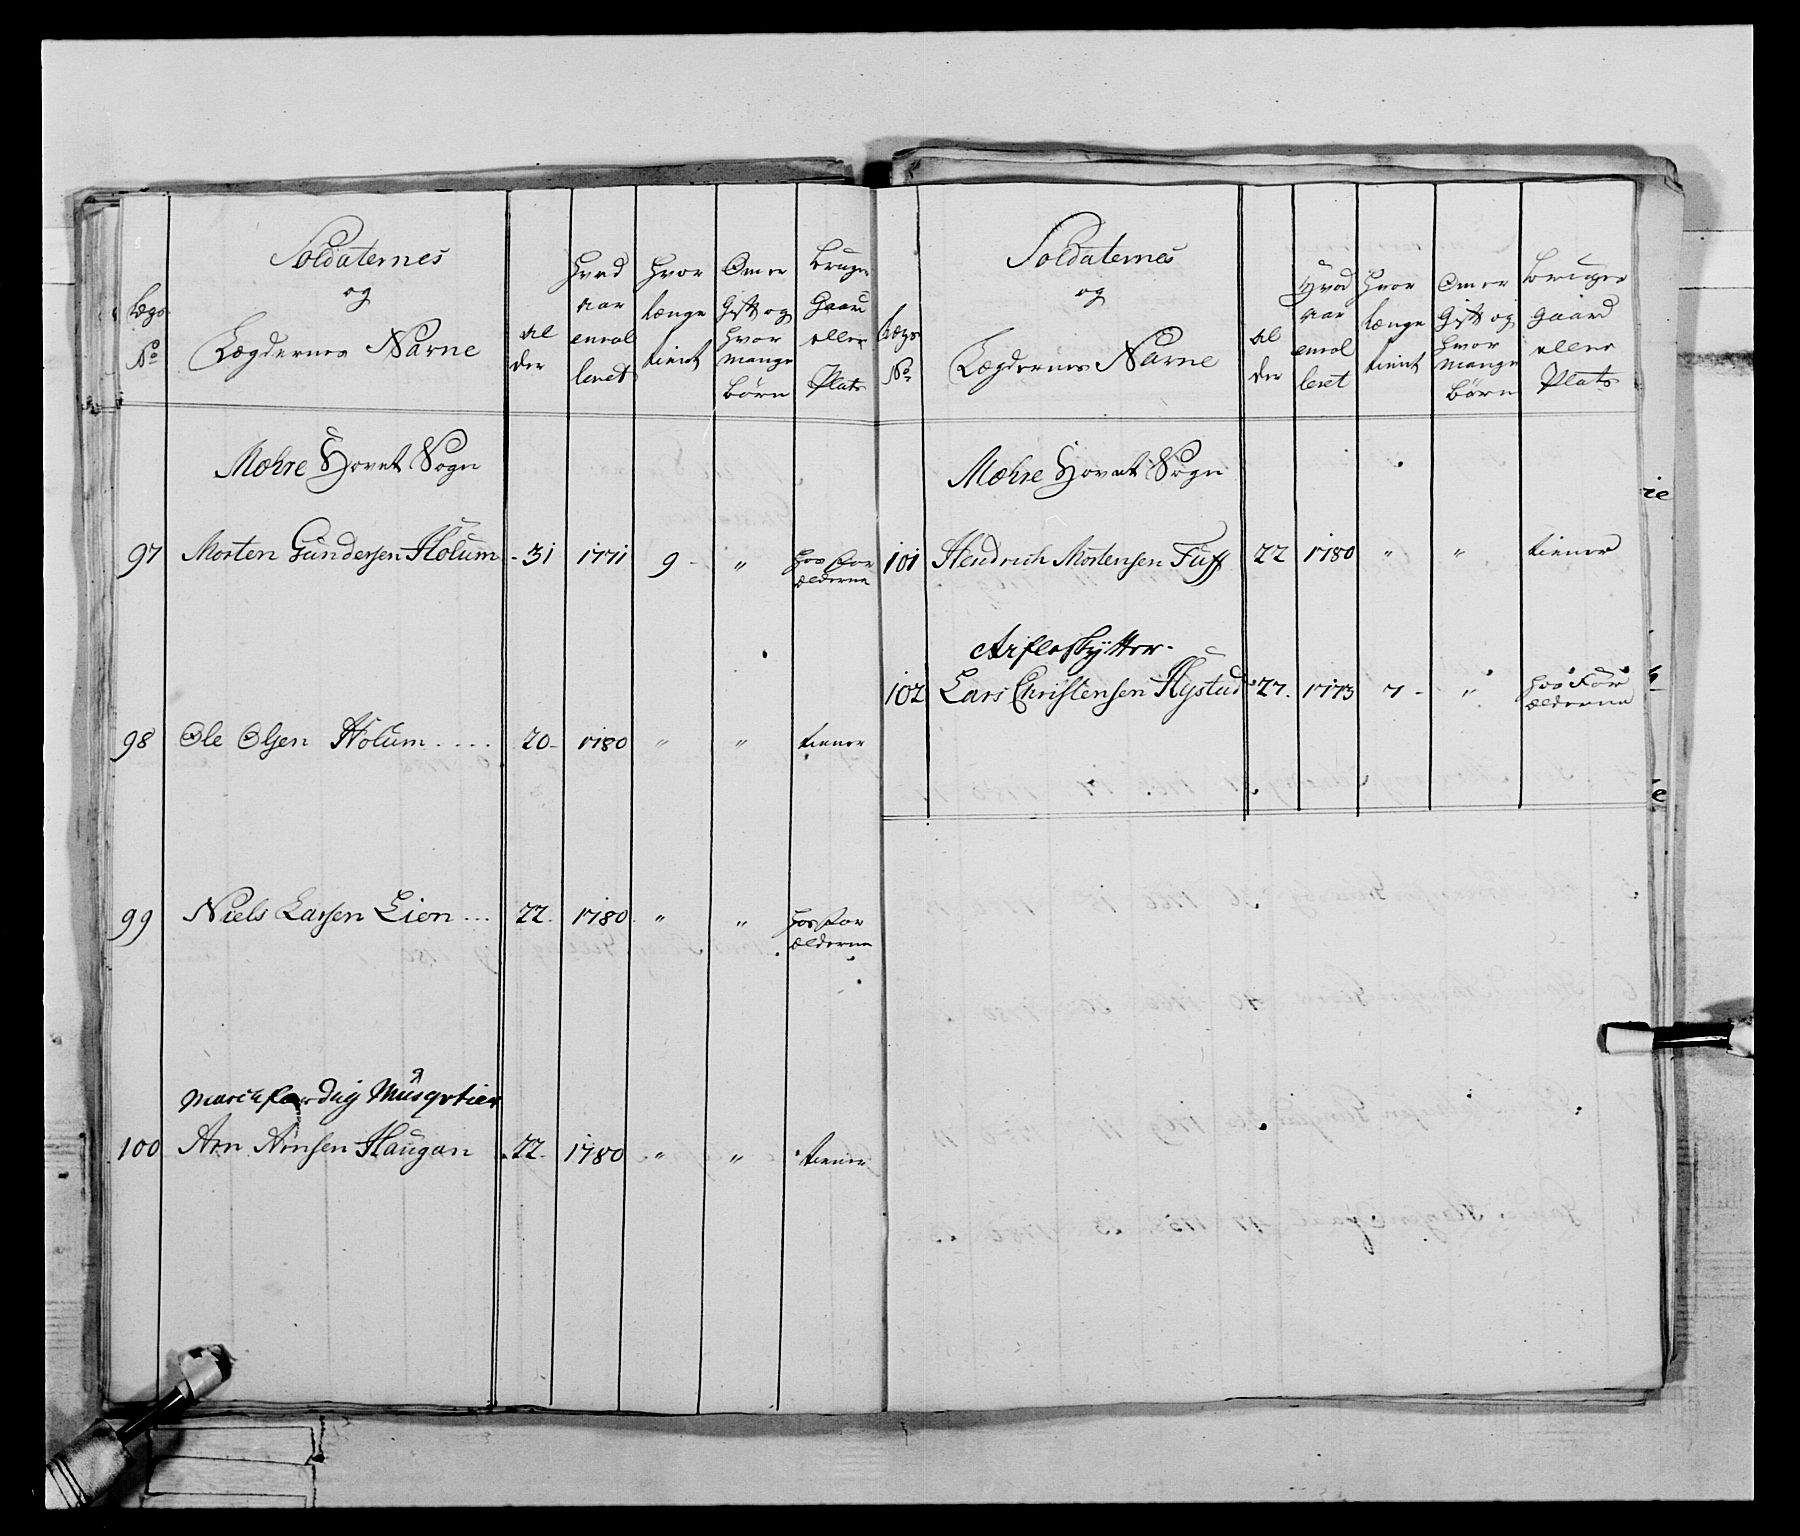 Lægs No
Soldaternes
og
Lægdernes Navne
Al der
Hvad aar enrol leret
Hvor længe tient
Om er Gift og hvor mange Børn
Bruger Gaard eller Plats
Mæhre Hovet Sogn
97 Morten Gundersen Holum - 31 1771 9 - " hos For ælderne
98 Ole Olsen Holum .... 20 - 1780 " " tiener
99 Niels Larsen Lien ... 22. 1780 " " hos For ælderne
Marchfærdig Musqvetier
100 Arn Arnsen Haugan 22. 1780 " " tiener
Lægs No
Soldaternes
og
Lægdernes Navne
Al der
Hvad aar enrol leret
Hvor længe tient
Om er Gift og hvor mange Børn
Bruger Gaard eller Plats
Mæhre Hovet Sogn
101 Hendrich Mortensen Tuff 22 1780 " " tiener
Rifleskytter.
102 Lars Christensen Hystad 27. 1773 7 - " hos For ælderne